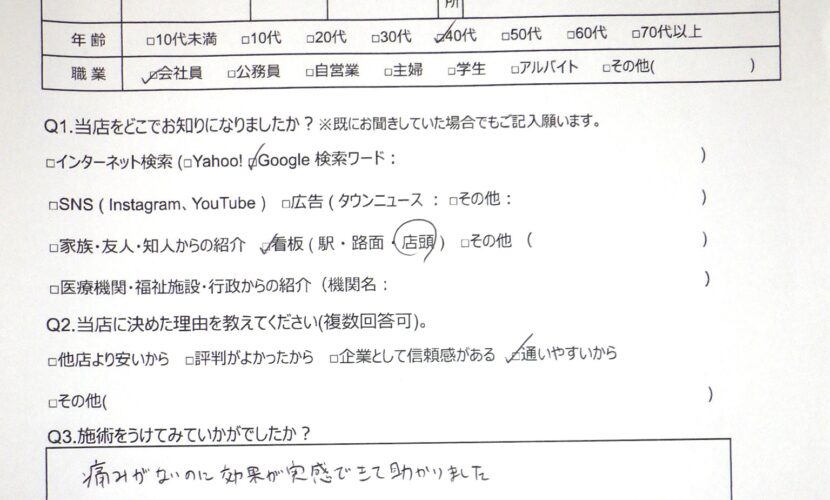 所
年齢 □10代未満 □10代 □20代 □30代 ☑40代 □50代 □60代 □70代以上
職業 ☑会社員 □公務員 □自営業 □主婦 □学生 □アルバイト □その他( )
Q1.当店をどこでお知りになりましたか？※既にお聞きしていた場合でもご記入願います。
□インターネット検索 (□Yahoo! ☑Google 検索ワード： )
□SNS ( Instagram、YouTube ) □広告 ( タウンニュース ： □その他： )
□家族・友人・知人からの紹介 ☑看板 ( 駅・路面・店頭 ) □その他 ( )
□医療機関・福祉施設・行政からの紹介（機関名： )
Q2.当店に決めた理由を教えてください(複数回答可)。
□他店より安いから □評判がよかったから □企業として信頼感がある ☑通いやすいから
□その他( )
Q3.施術をうけてみていかがでしたか？
痛みがないのに効果が実感できて助かりました